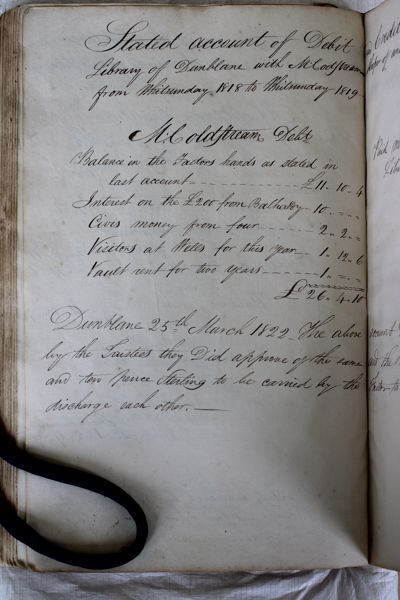 Stated account of Debit
Library of Dunblane with M. Coldstream
from Whitsunday 1818 to Whitsunday 1819
M. Coldstream Debt
Balance in the Factors hands as stated in
last account £11. 10. 4
Interest on the £200 from Balhaldy 10 " "
Civis money from four 2 " 2 "
Visitors at Wells for this year 1 " 12 " 6
Vault rent for two years 1 " "
£26 " 4 " 10
Dunblane 25th March 1822 The above
by the Trustees they Did approve of the same
and ten pence Sterling to be carried by the
discharge each other.